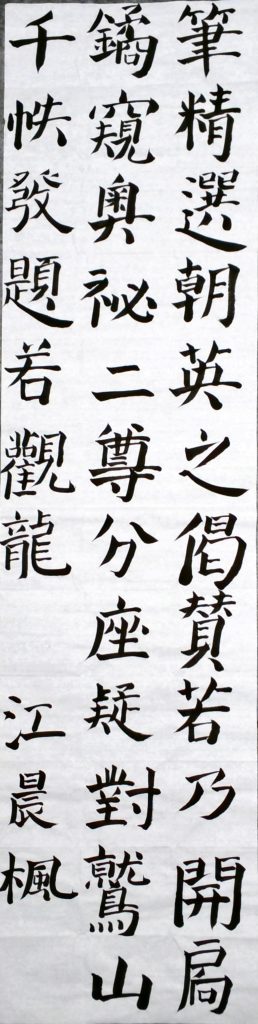 筆精選朝英之偈賛若乃開扃
鐍窺奧祕二尊分座疑對鷲山
千帙發題若觀龍 江晨楓